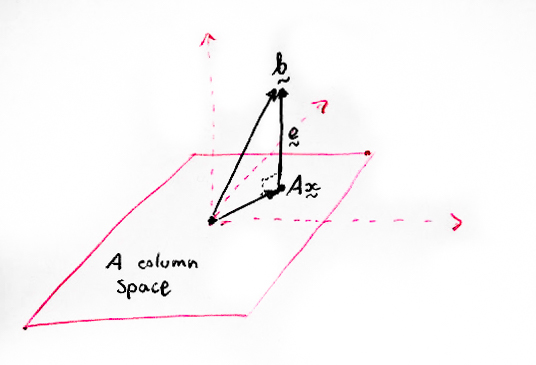 b
e
Ax
A column
space